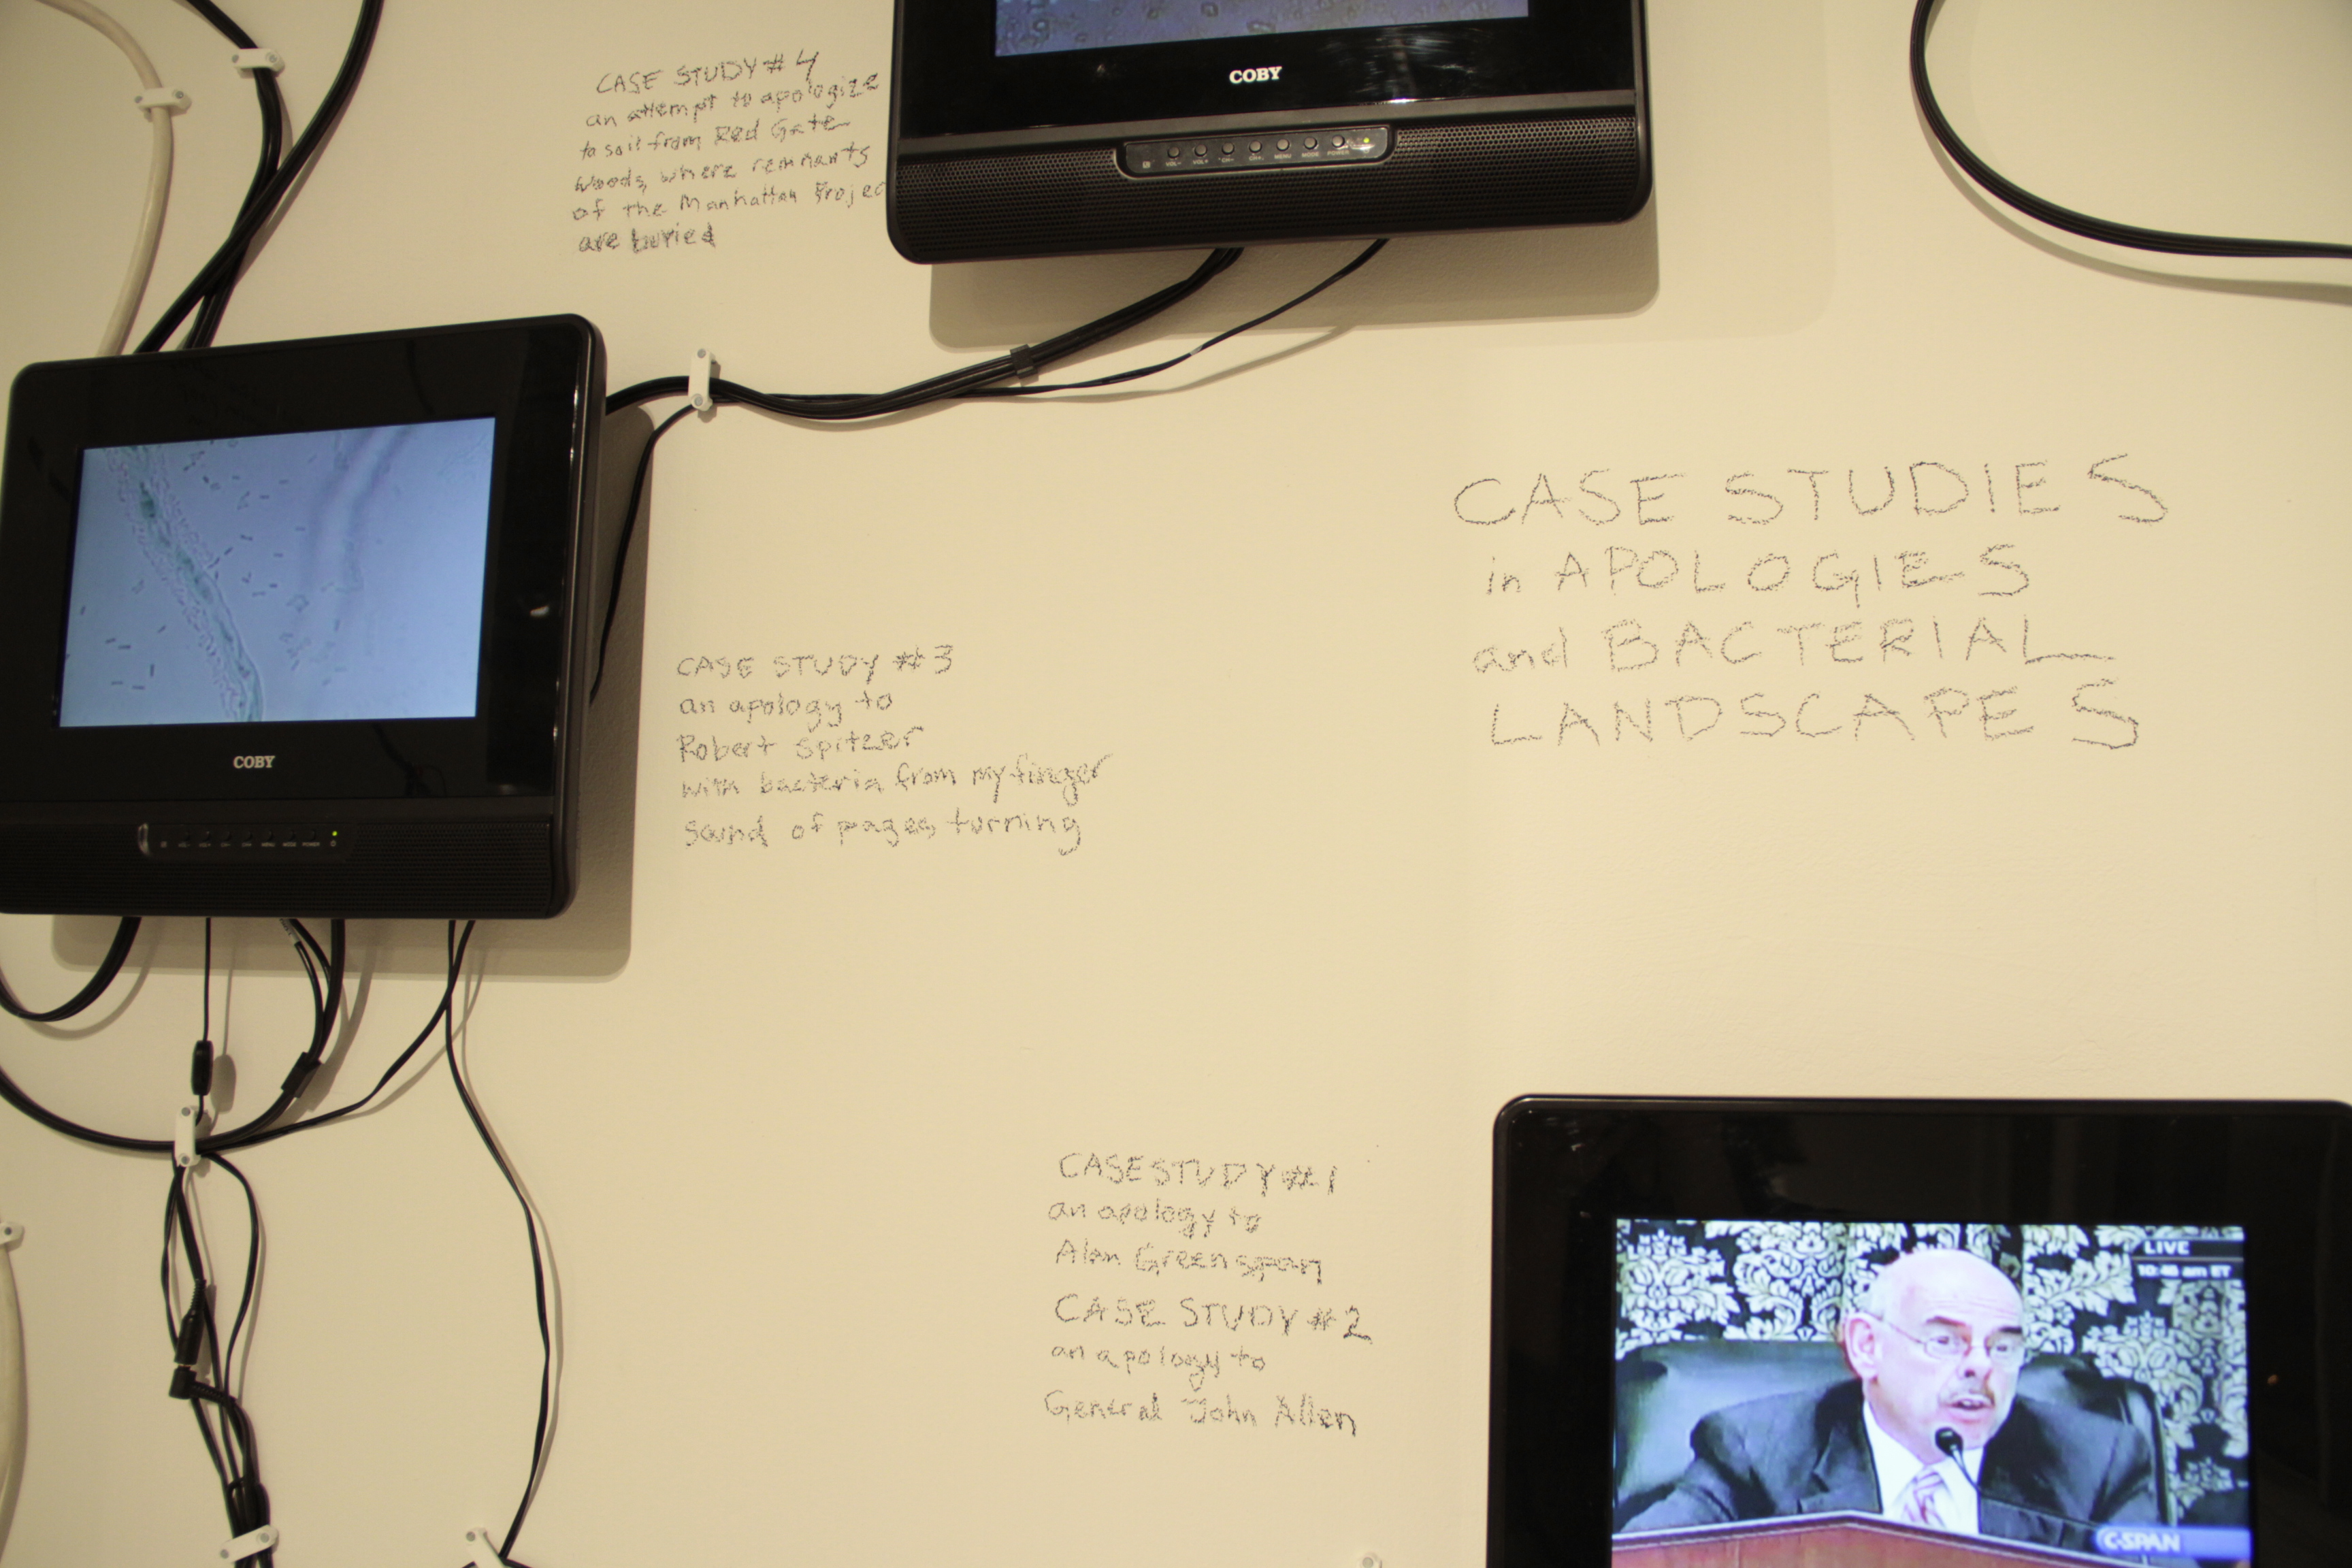 CASE STUDY #4
an attempt to apologize
to soil from Red Gate
Woods, where remnants
of the Manhattan Projec
are buried
COBY
CASE STUDIES
in APOLOGIES
and BACTERIAL
LANDSCAPES
COBY
CASE STUDY #3
an apology to
Robert Spitzer
with bacteria from my finger
sound of pages turning
CASE STUDY #1
an apology to
Alan Greenspan
CASE STUDY #2
an apology to
General John Allen
LIVE
am ET
C-SPAN